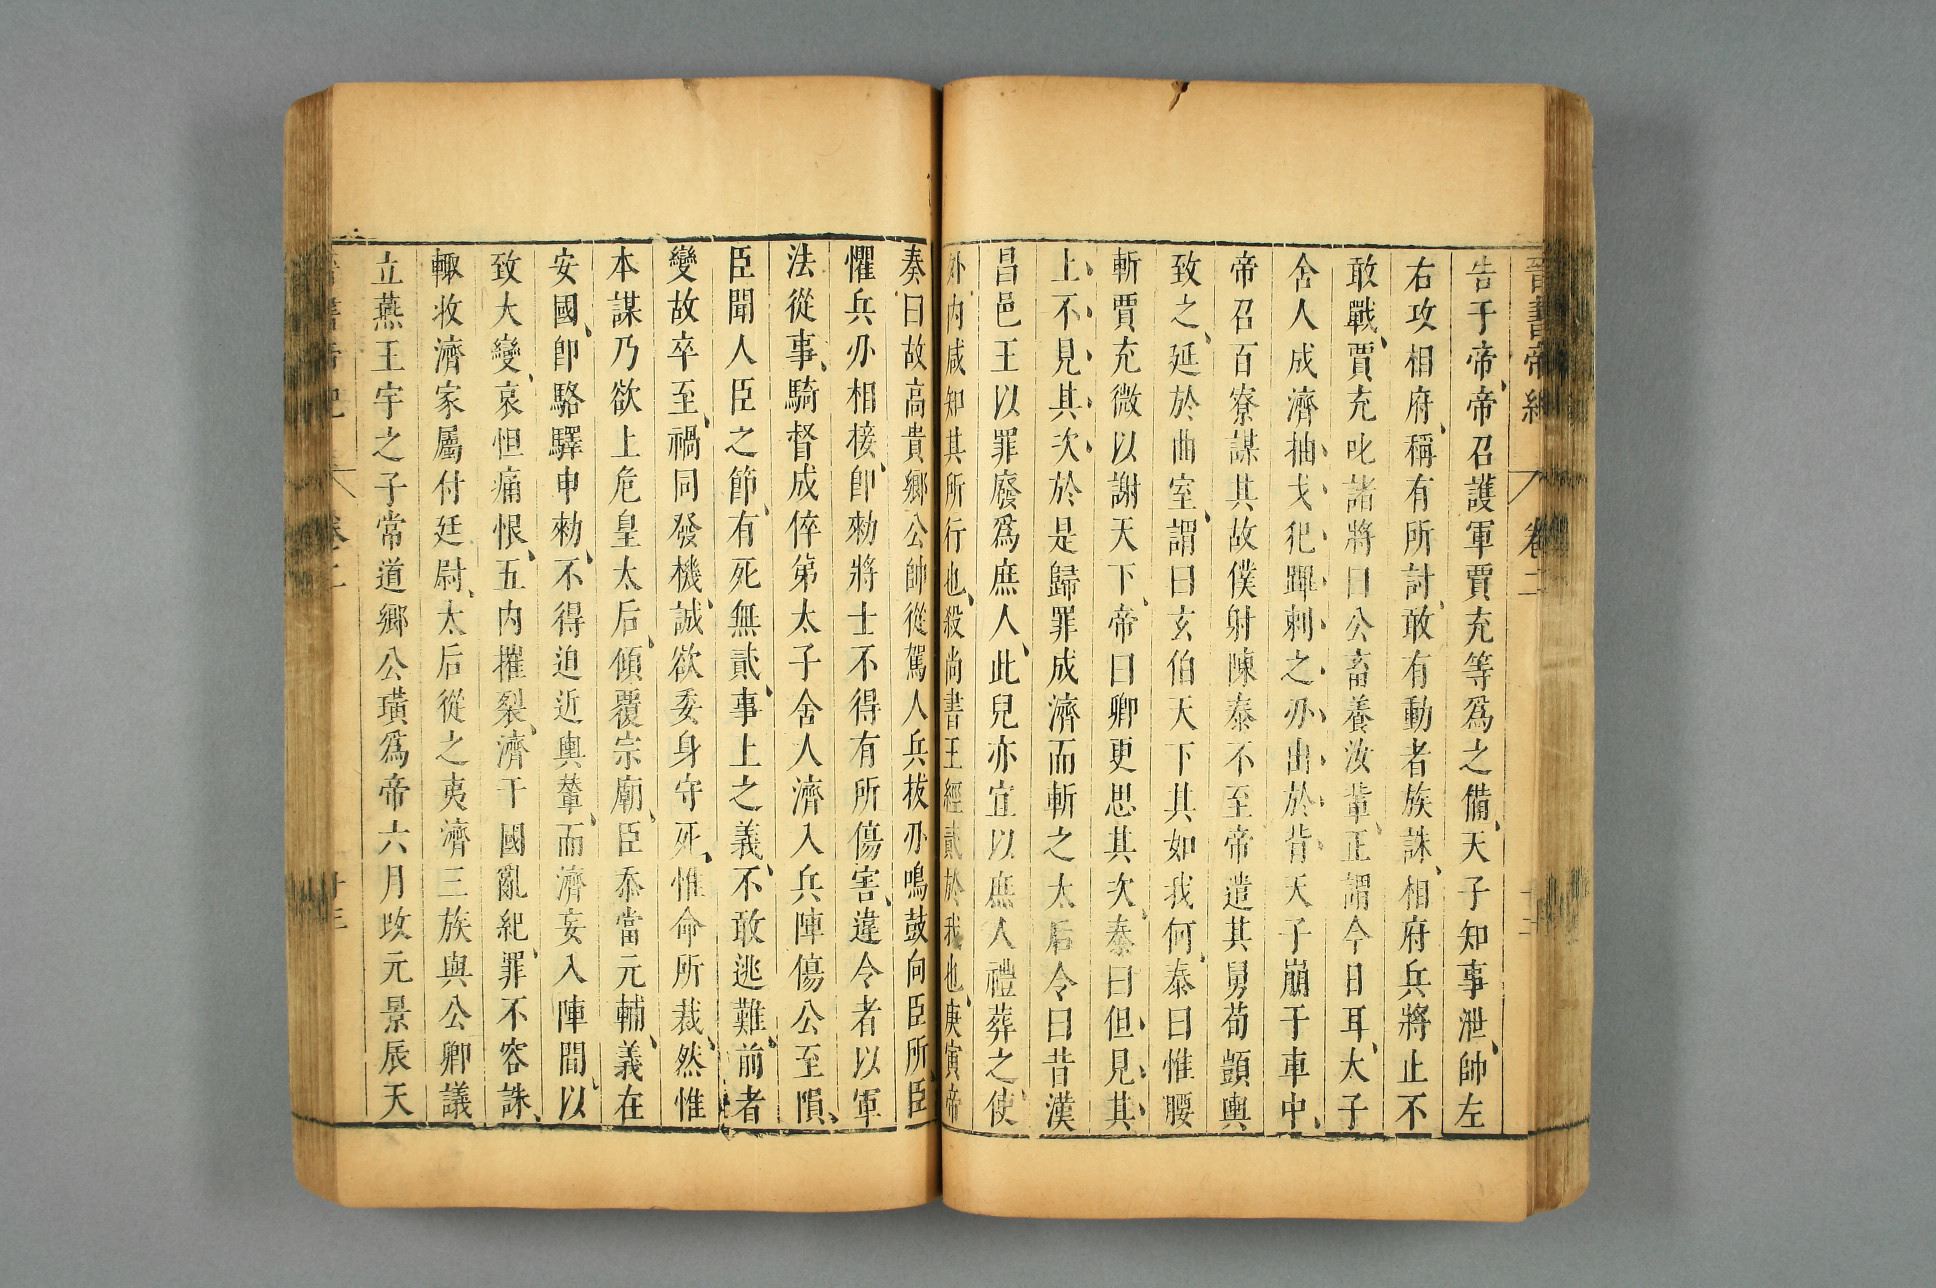 晉書帝紀 卷二
告于帝帝召護軍賈充等爲之備天子知事泄帥左
右攻相府稱有所討敢有動者族誅相府兵將止不
敢戰賈充叱諸將曰公畜養汝輩正謂今日耳太子
舍人成濟抽戈犯蹕刺之刅出於背天子崩于車中
帝召百寮謀其故僕射陳泰不至帝遣其舅荀顗輿
致之延於曲室謂曰玄伯天下其如我何泰曰惟腰
斬賈充微以謝天下帝曰卿更思其次泰曰但見其
上不見其次於是歸罪成濟而斬之太后令曰昔漢
昌邑王以罪廢爲庶人此兒亦宜以庶人禮葬之使
外内咸知其所行也殺尚書王經貳於我也庚寅帝
奏曰故高貴鄉公帥從駕人兵拔刅鳴鼓向臣所臣
懼兵刅相接卽勑將士不得有所傷害違令者以軍
法從事騎督成倅第太子舍人濟入兵陣傷公至隕
臣聞人臣之節有死無貳事上之義不敢逃難前者
變故卒至禍同發機誠欲委身守死惟命所裁然惟
本謀乃欲上危皇太后傾覆宗廟臣忝當元輔義在
安國卽駱驛申勑不得迫近輿輦而濟妄入陣間以
致大變哀怛痛恨五内摧裂濟干國亂紀罪不容誅
輙收濟家屬付廷尉太后從之夷濟三族與公卿議
立燕王宇之子常道鄉公璜爲帝六月改元景辰天
晉書帝紀 卷二 十三